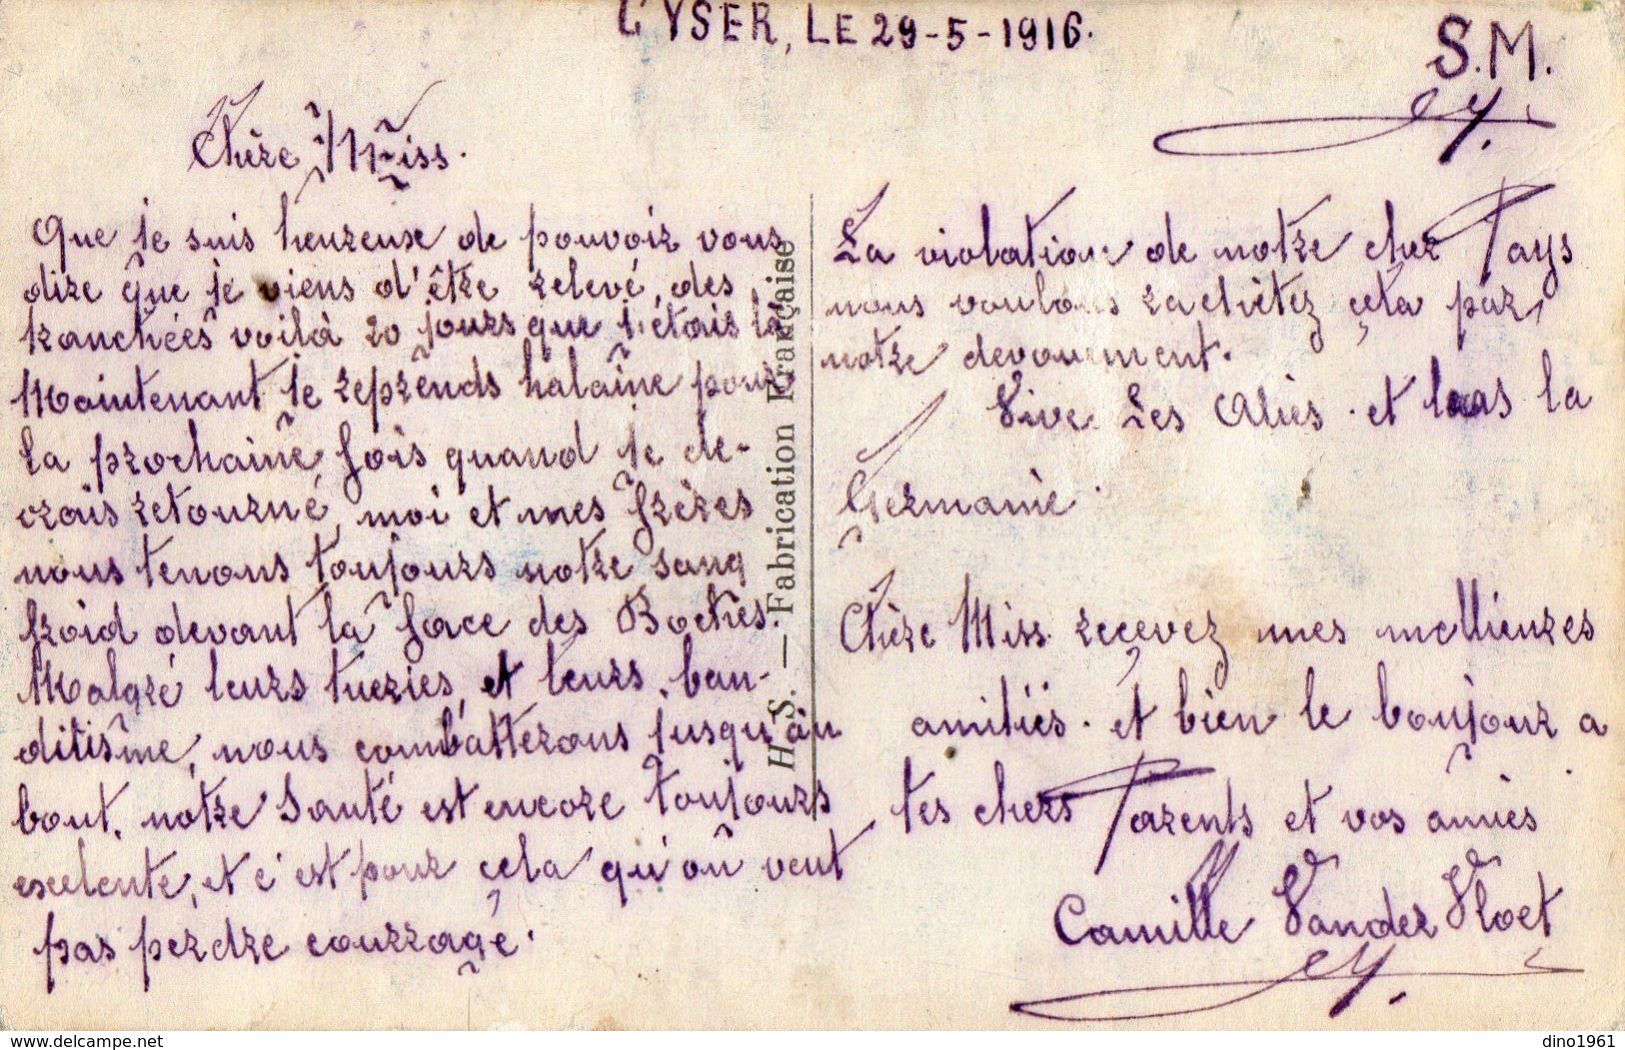 L'YSER, LE 29-5-1916.
S.M.
Chère Miss.
Que je suis heureuse de pouvoir vous
dire que je viens d'être relevé, des
tranchées voilà 20 jours que j'étais là
Maintenant je reprends halaine pour
la prochaine fois quand je de-
vrais retourné, moi et mes frères
nous tenons toujours notre sang
froid devant la face des Boches.
Malgré leurs tueries, et leurs, ban-
ditisme, nous combatterons jusqu'au
bout. notre Santé est encore toujours
excelente, et c'est pour çela qu'on veut
pas perdre courrage.
H. S. — Fabrication Française
La violation de notre cher Pays
nous voulons rachitez çela par,
notre devouement.
Vive Les Aliés. et bas la
Germanie.
Chère Miss reçevez mes mellieures
amitiés. et bien le boujour a
tes chers Parents et vos amies
Camille Vander Vloet
delcampe.net
dino1961